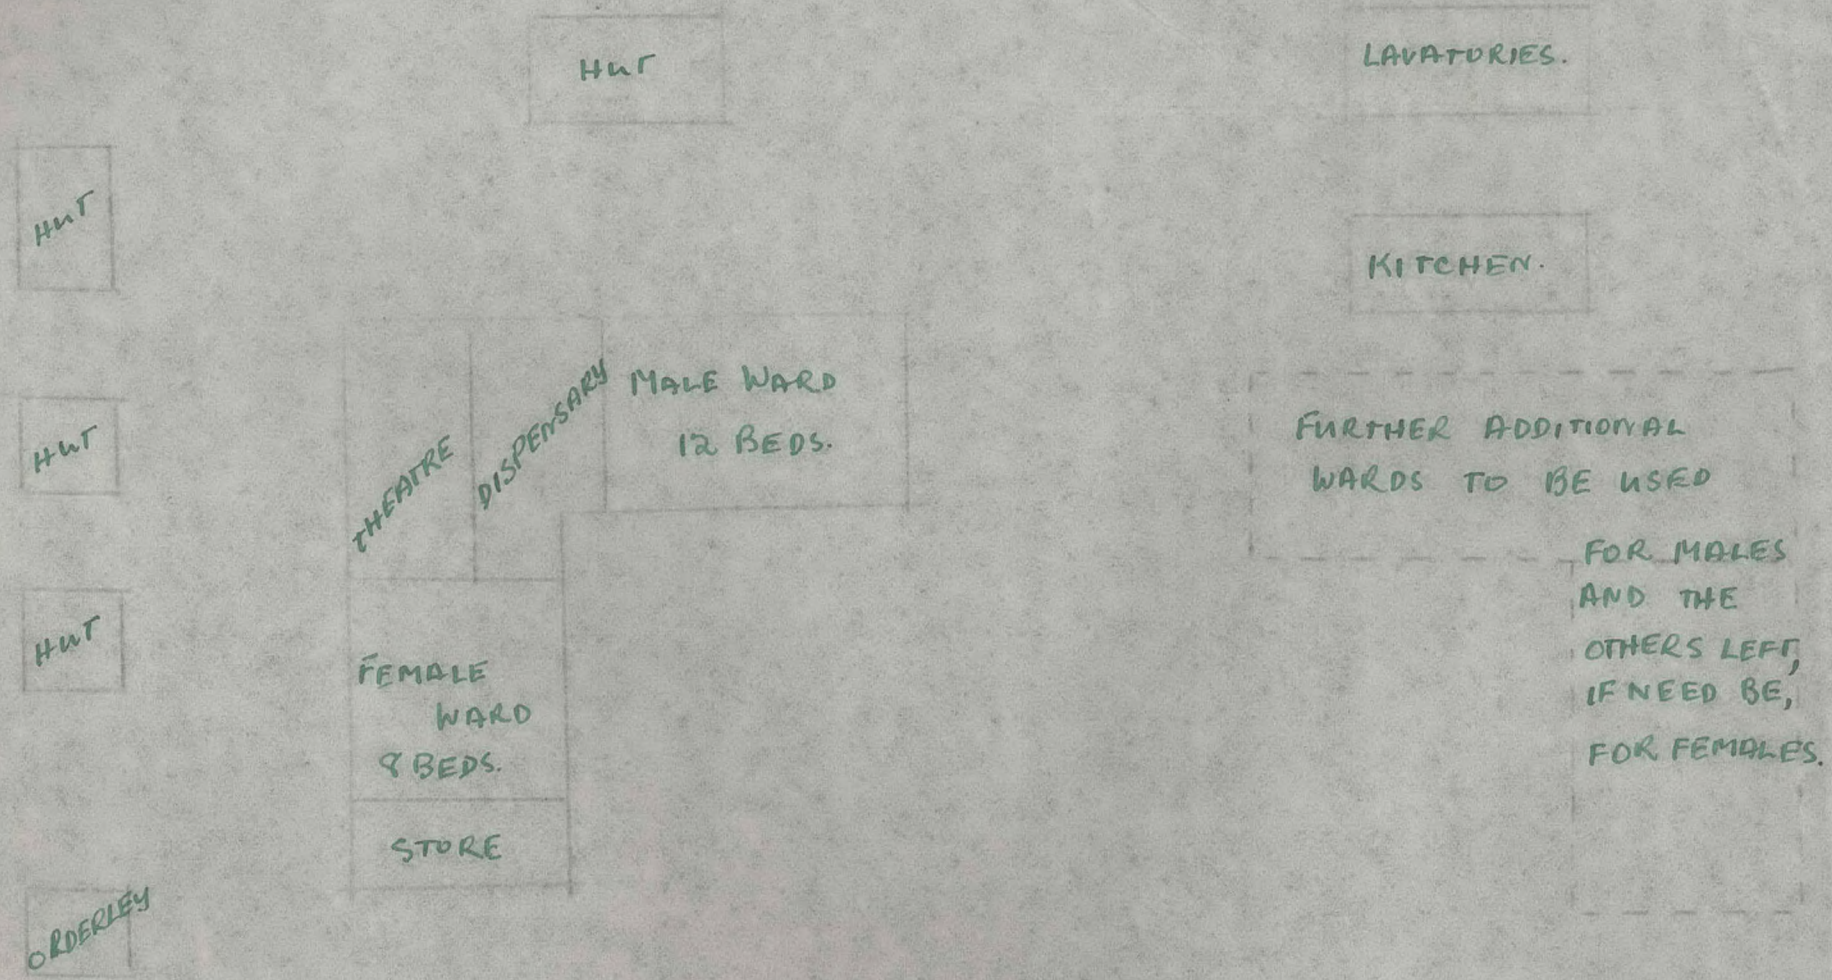 HUT
LAVATORIES.
HUT
KITCHEN.
THEATRE
DISPENSARY
MALE WARD
12 BEDS.
HUT
FURTHER ADDITIONAL
WARDS TO BE USED
FOR MALES
AND THE
OTHERS LEFT,
IF NEED BE,
FOR FEMALES.
HUT
FEMALE
WARD
8 BEDS.
STORE
ORDERLEY